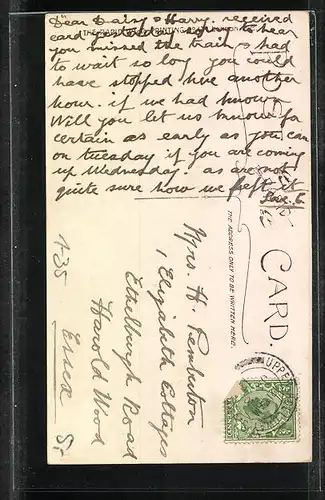 Dear Daisy & Harry. received
card so sorry to hear
you missed the train & had
to wait so long you could
have stopped here another
hour. if we had known
Will you let us know for
certain as early as you can
on tuesday if you are coming
up Wednesday. as are not
quite sure how we left it
Love. E.
CARD.
THE ADDRESS ONLY TO BE WRITTEN HERE.
Mrs. H. Pemberton
1 Elizabeth Cottages
Ethelburgh Road
Harold Wood
Essex
1-35
5,-
UPPE